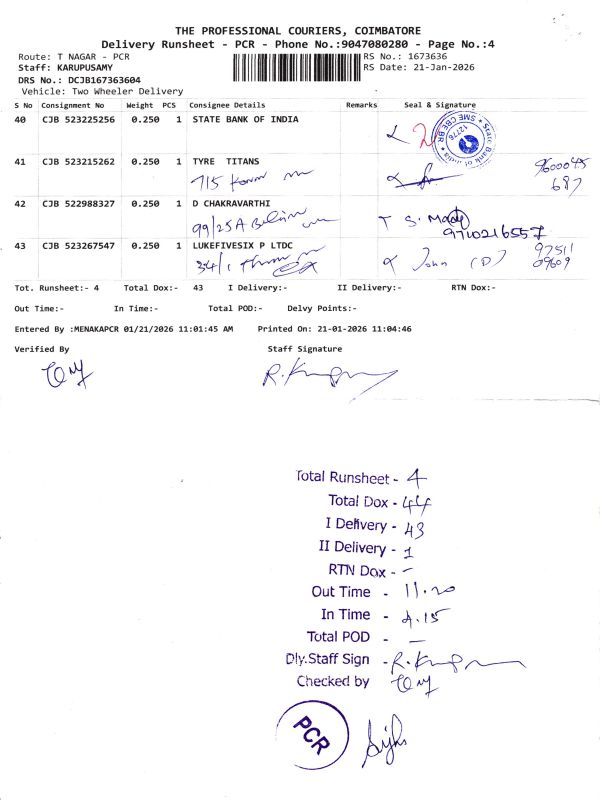 THE PROFESSIONAL COURIERS, COIMBATORE
Delivery Runsheet - PCR - Phone No.:9047080280 - Page No.:4
Route: T NAGAR - PCR
RS No.: 1673636
Staff: KARUPUSAMY
RS Date: 21-Jan-2026
DRS No.: DCJB167363604
Vehicle: Two Wheeler Delivery
S No Consignment No Weight PCS Consignee Details Remarks Seal & Signature
40 CJB 523225256 0.250 1 STATE BANK OF INDIA
State Bank of India SME CBE BR 12776
41 CJB 523215262 0.250 1 TYRE TITANS
715
9600045
687
42 CJB 522988327 0.250 1 D CHAKRAVARTHI
99/25A
T S. Mady
9710216557
43 CJB 523267547 0.250 1 LUKEFIVESIX P LTDC
34/1
John (D)
97511
09609
Tot. Runsheet:- 4 Total Dox:- 43 I Delivery:- II Delivery:- RTN Dox:-
Out Time:- In Time:- Total POD:- Delvy Points:-
Entered By :MENAKAPCR 01/21/2026 11:01:45 AM Printed On: 21-01-2026 11:04:46
Verified By Staff Signature
Total Runsheet - 4
Total Dox - 44
I Delivery - 43
II Delivery - 1
RTN Dox - -
Out Time - 11.20
In Time - 4.15
Total POD - -
Dly.Staff Sign -
Checked by
PCR